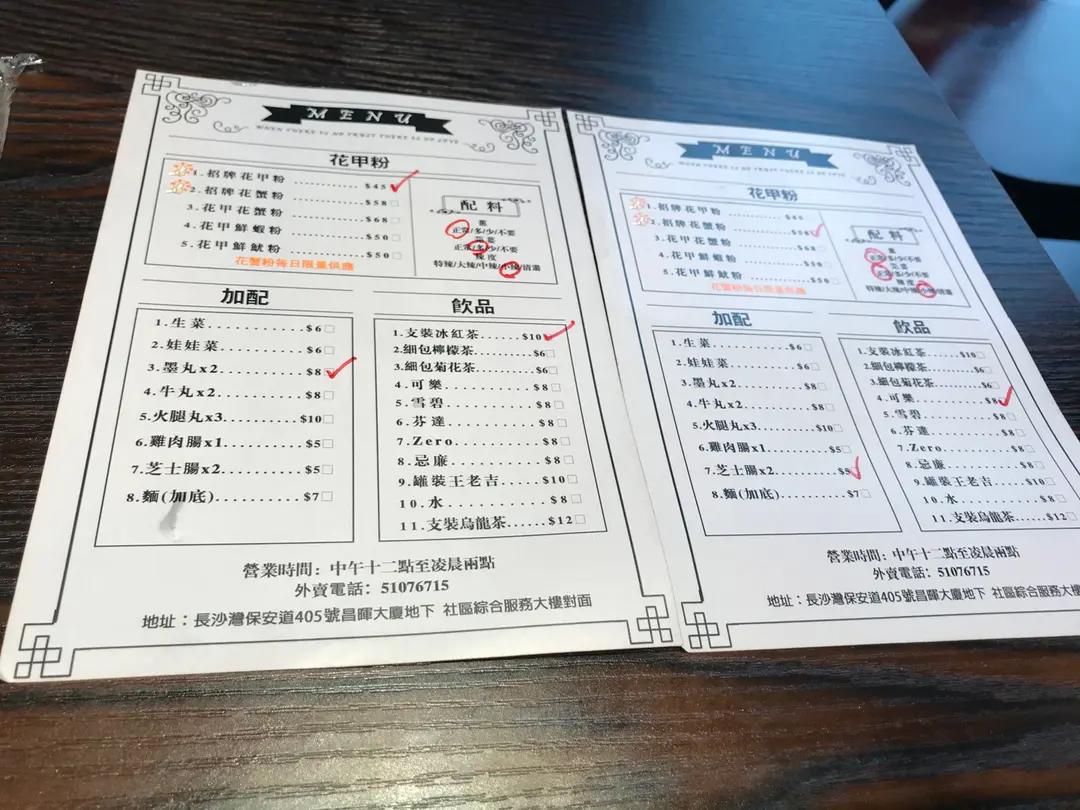 MENU
WHEN THERE IS NO TRUST THERE IS NO LOVE
花甲粉
1.招牌花甲粉 ............ $45
2.招牌花蟹粉 ............ $58
3.花甲花蟹粉 ............ $68
4.花甲鮮蝦粉 ............ $50
5.花甲鮮魷粉 ............ $50
花蟹粉每日限量供應
配料
蔥
正常/多/少/不要
芫荽
正常/多/少/不要
辣度
特辣/大辣/中辣/小辣/清湯
加配
1.生菜............$6
2.娃娃菜..........$6
3.墨丸x2..........$8
4.牛丸x2..........$8
5.火腿丸x3........$10
6.雞肉腸x1........$5
7.芝士腸x2........$5
8.麵(加底)........$7
飲品
1.支裝冰紅茶......$10
2.細包檸檬茶......$6
3.細包菊花茶......$6
4.可樂............$8
5.雪碧............$8
6.芬達............$8
7.Zero............$8
8.忌廉............$8
9.罐裝王老吉......$10
10.水.............$8
11.支裝烏龍茶.....$12
營業時間：中午十二點至凌晨兩點
外賣電話：51076715
地址：長沙灣保安道405號昌暉大廈地下 社區綜合服務大樓對面
MENU
WHEN THERE IS NO TRUST THERE IS NO LOVE
花甲粉
1.招牌花甲粉 ............ $45
2.招牌花蟹粉 ............ $58
3.花甲花蟹粉 ............ $68
4.花甲鮮蝦粉 ............ $50
5.花甲鮮魷粉 ............ $50
花蟹粉每日限量供應
配料
蔥
正常/多/少/不要
芫荽
正常/多/少/不要
辣度
特辣/大辣/中辣/小辣/清湯
加配
1.生菜............$6
2.娃娃菜..........$6
3.墨丸x2..........$8
4.牛丸x2..........$8
5.火腿丸x3........$10
6.雞肉腸x1........$5
7.芝士腸x2........$5
8.麵(加底)........$7
飲品
1.支裝冰紅茶......$10
2.細包檸檬茶......$6
3.細包菊花茶......$6
4.可樂............$8
5.雪碧............$8
6.芬達............$8
7.Zero............$8
8.忌廉............$8
9.罐裝王老吉......$10
10.水.............$8
11.支裝烏龍茶.....$12
營業時間：中午十二點至凌晨兩點
外賣電話：51076715
地址：長沙灣保安道405號昌暉大廈地下 社區綜合服務大樓